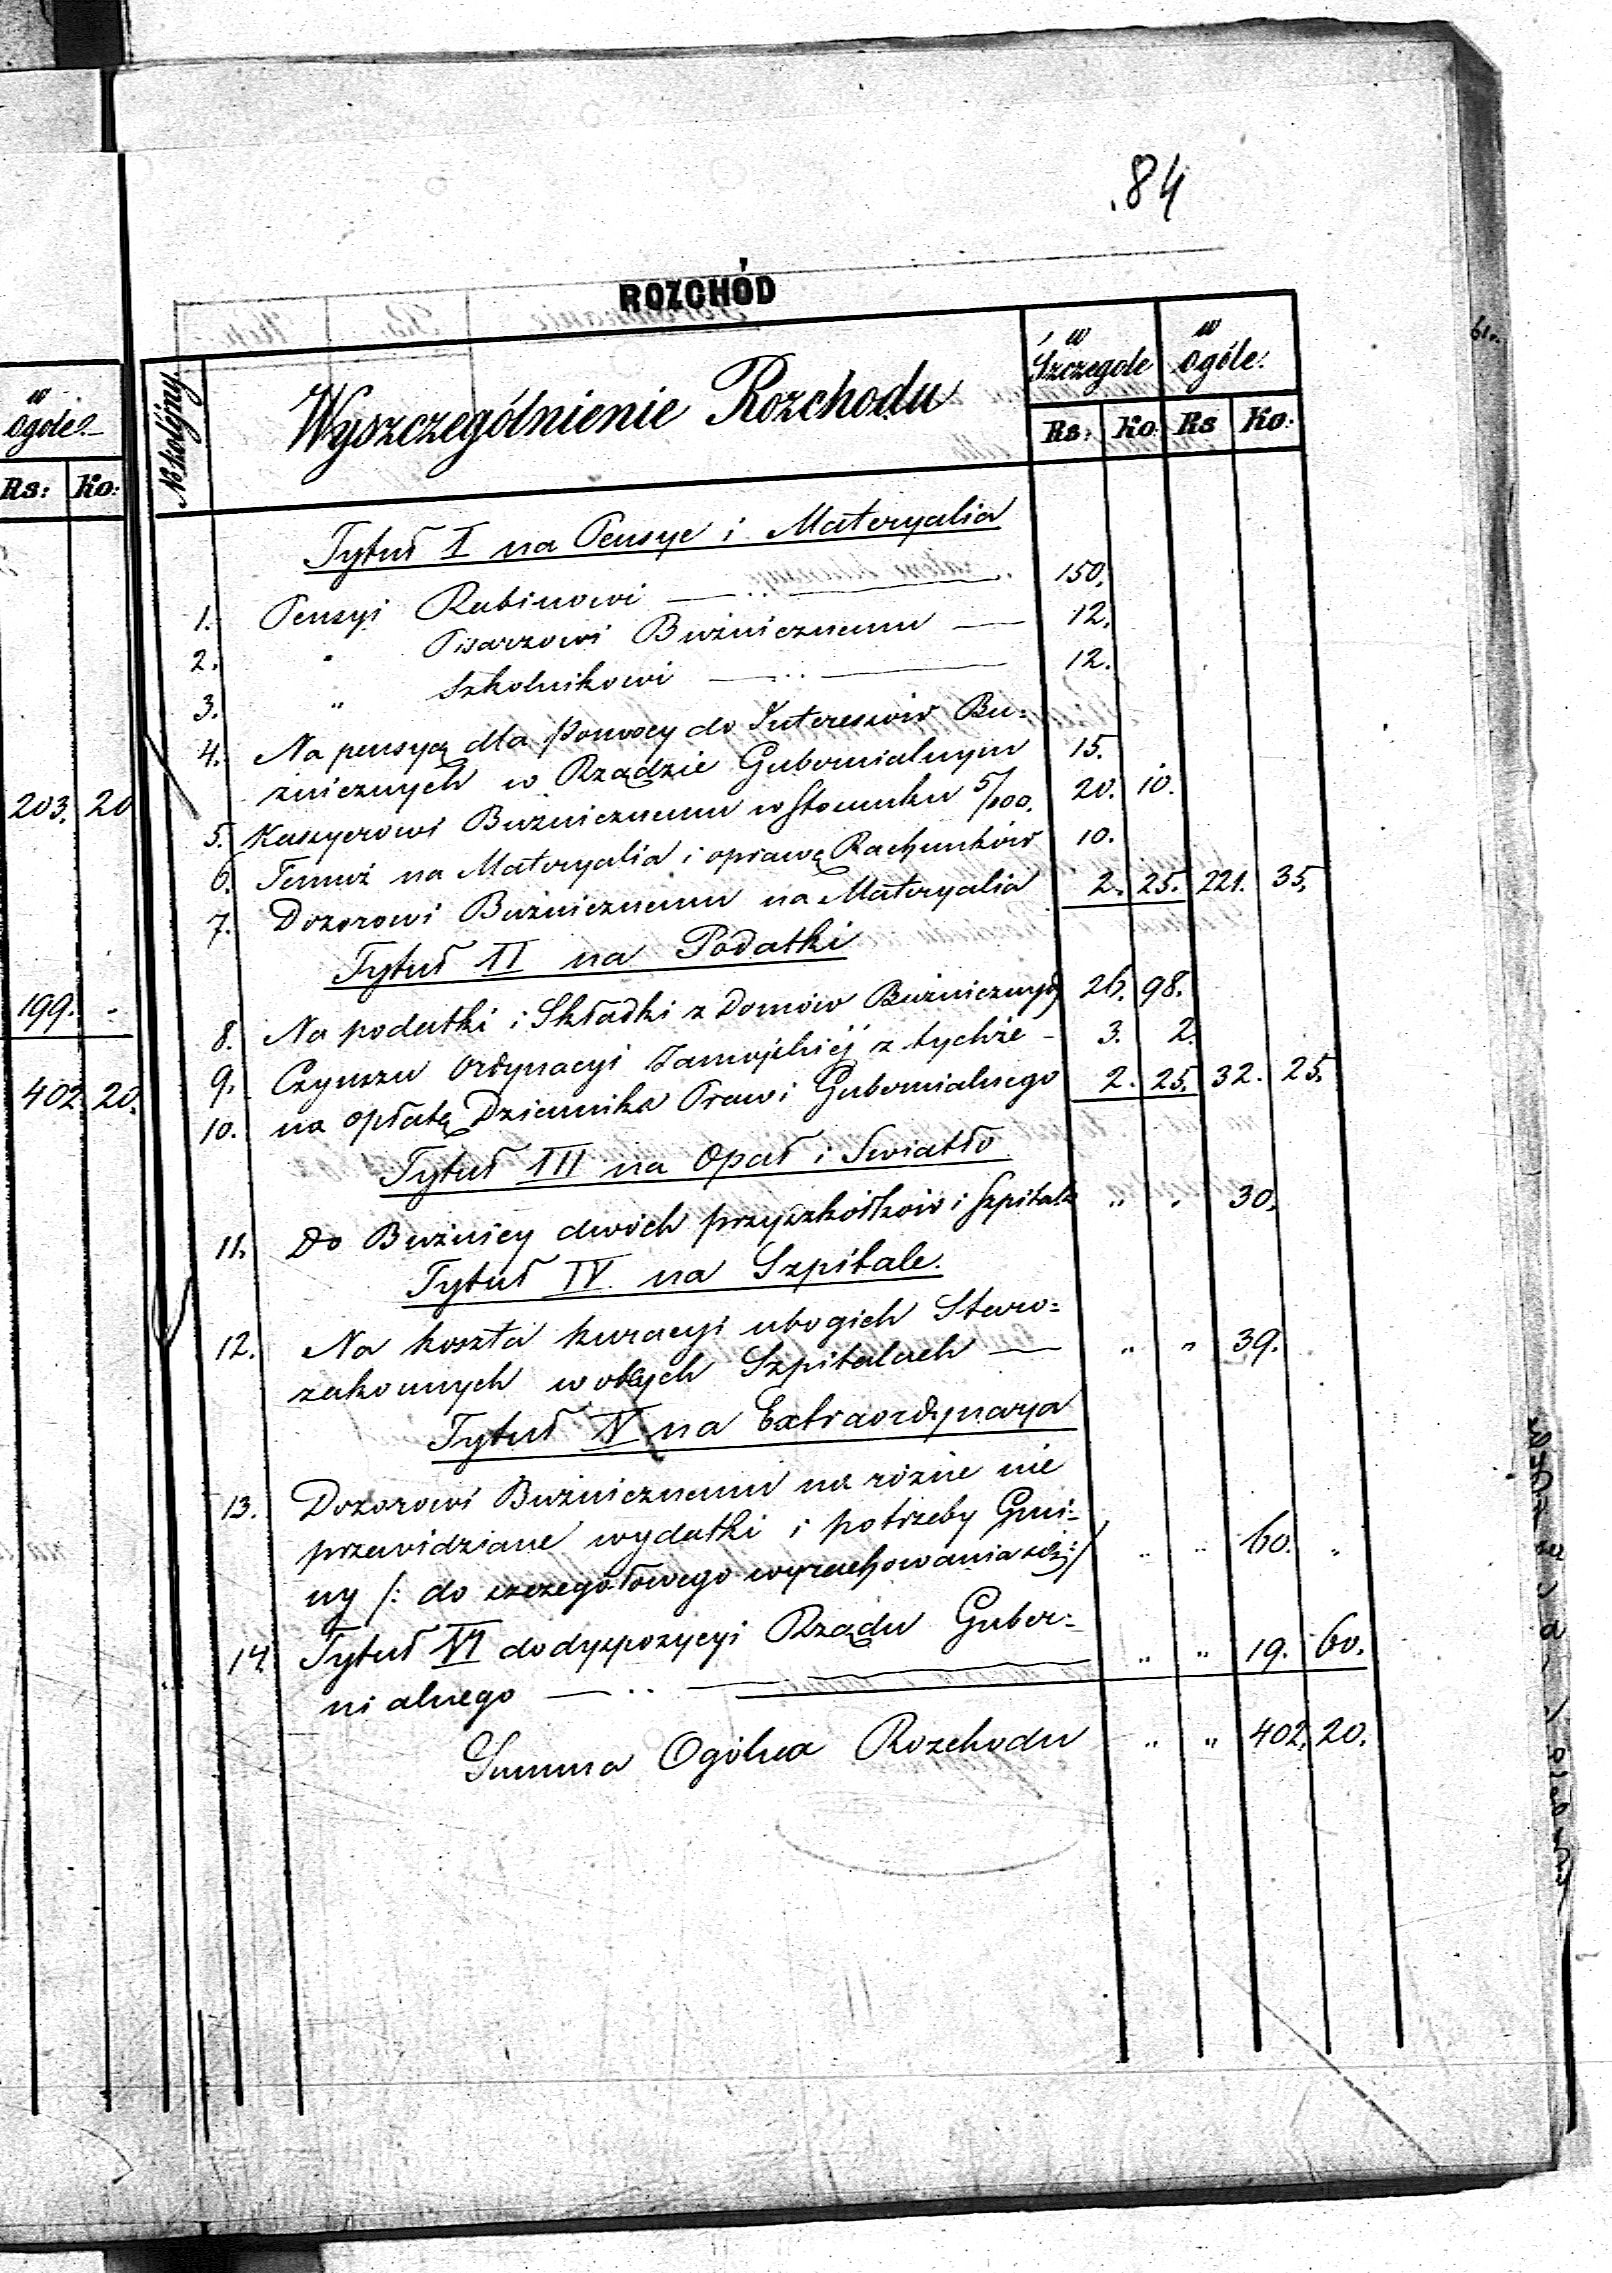 84
ROZCHÓD
w ogóle
Rs: Ko:
203. 20
199. -
402 20.
No kolejny
Wyszczególnienie Rozchodu
w Szczegole
w ogóle.
Rs: Ko: Rs Ko:
Tytuł I na Pensye i Materyalia
1. Pensyi Rabinowi 150.
2. " Pisarzowi Bużnicznemu 12.
3. " Szkolnikowi 12.
4. Na pensyą dla Pomocy do Interessów Bu=
żnicznych w Rządzie Gubernialnym 15.
5. Kassyerowi Bużnicznemu w stosunku 5/100. 20. 10.
6. Temuż na Materyalia i oprawę Rachunków 10.
7. Dozorowi Bużnicznemu na Materyalia 2. 25. 221. 35.
Tytuł II na Podatki
8. Na podatki i Składki z Domów Bużnicznych 26. 98.
9. Czynszu Ordynacyi Zamojskiéj z tychże - 3. 2.
10. na opłatę Dziennika Praw i Gubernialnego 2. 25. 32. 25.
Tytuł III na Opał i Swiatło
11. Do Bużnicy dwóch przyszkołków i Szpitala " " 30.
Tytuł IV na Szpitale.
12. Na koszta kuracyi ubogich Staro=
zakonnych w obcych Szpitalach " " 39.
Tytuł V na Extraordynarya
13. Dozorowi Bużnicznemu na różne nie
przewidziane wydatki i potrzeby Gmi=
ny /: do szczegółowego wyrachowania się :/ " " 60. "
14. Tytuł VI do dyspozycyi Rządu Guber=
nialnego " " 19. 60.
Summa Ogólna Rozchodu " " 402. 20.